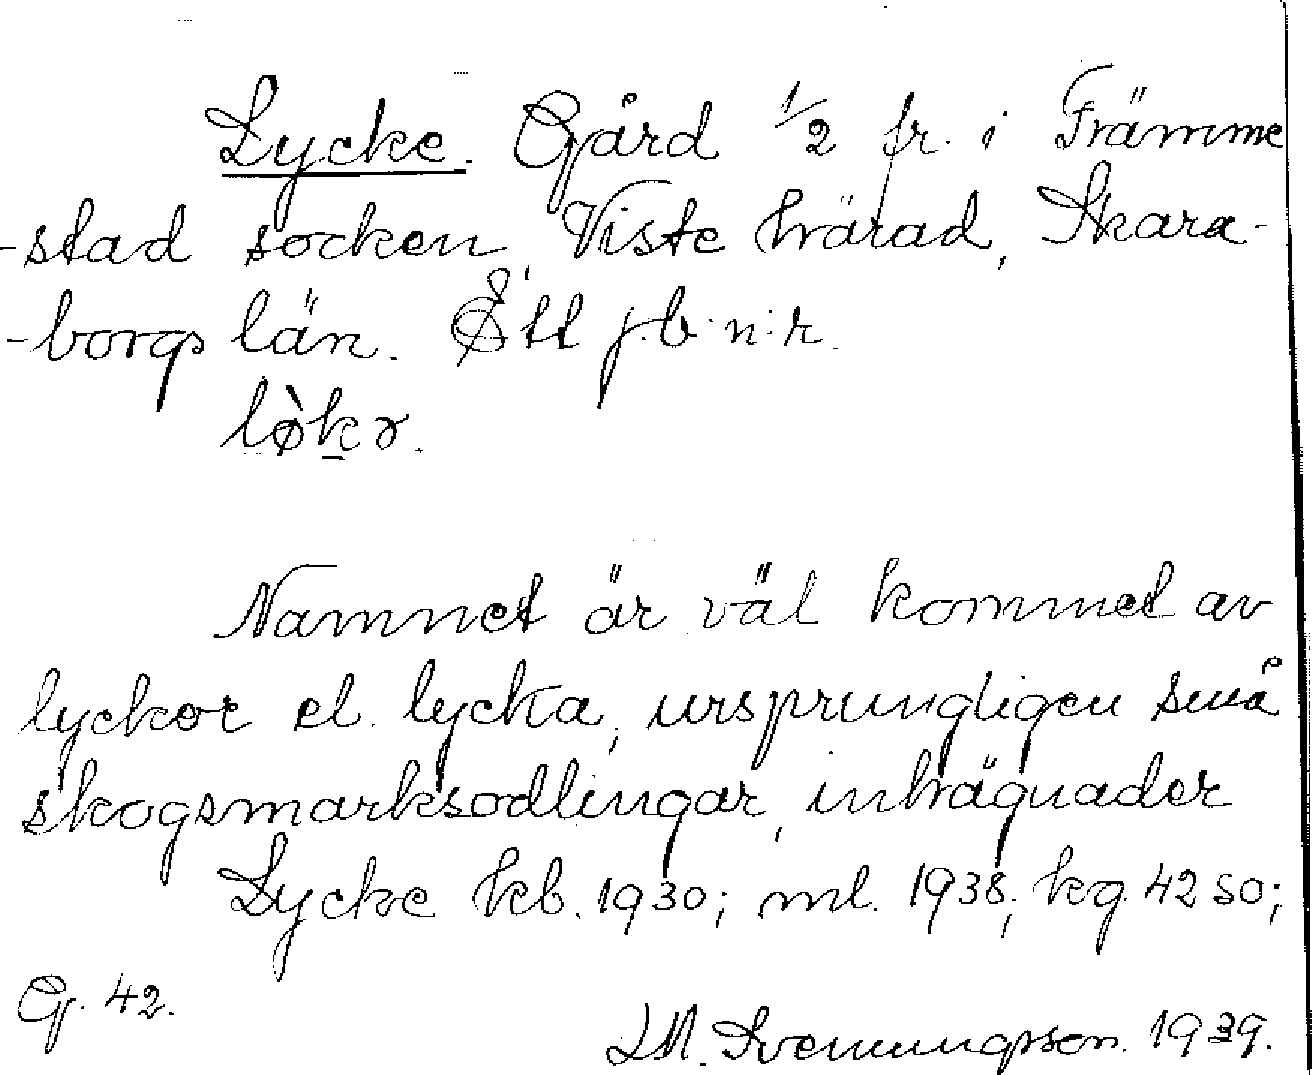 Lycke. Gård 1/2 fr. i Främme
-stad socken, Viste härad, Skara-
-borgs län. Ett j.b.n:r.
lø̀kə.
Namnet är väl kommet av
lyckor el. lycka, ursprungligen små
skogsmarksodlingar, inhägnader
Lycke kb. 1930; ml. 1938; kg. 42 so;
G. 42.
LM. Svenungsson. 1939.